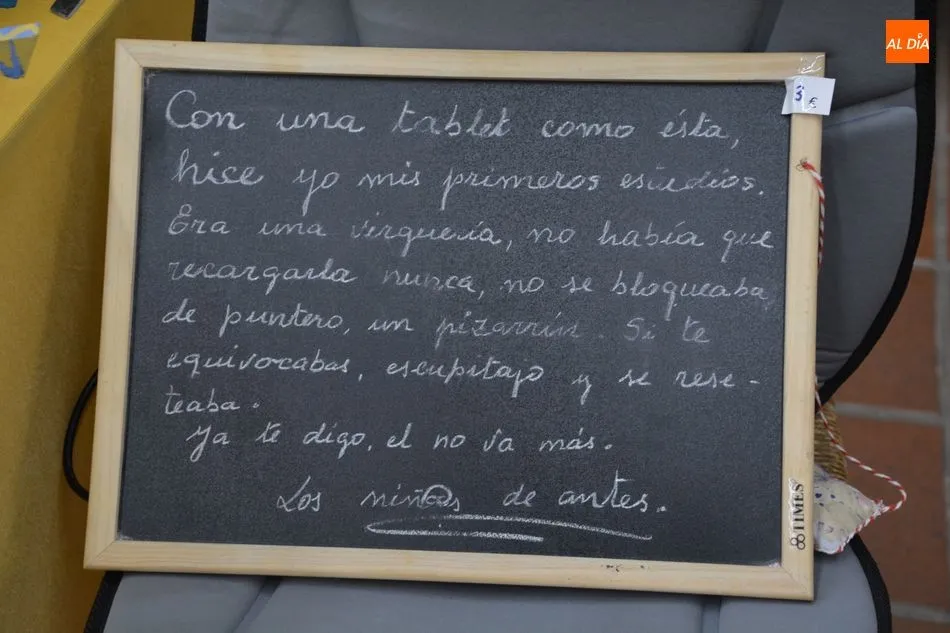 AL DÍA
3 €
Con una tablet como ésta,
hice yo mis primeros estudios.
Era una virguería, no había que
recargarla nunca, no se bloqueaba,
de puntero, un pizarrín. Si te
equivocabas, escupitajo y se rese-
teaba.
Ya te digo, el no va más.
Los niñ@s de antes.
TIMES